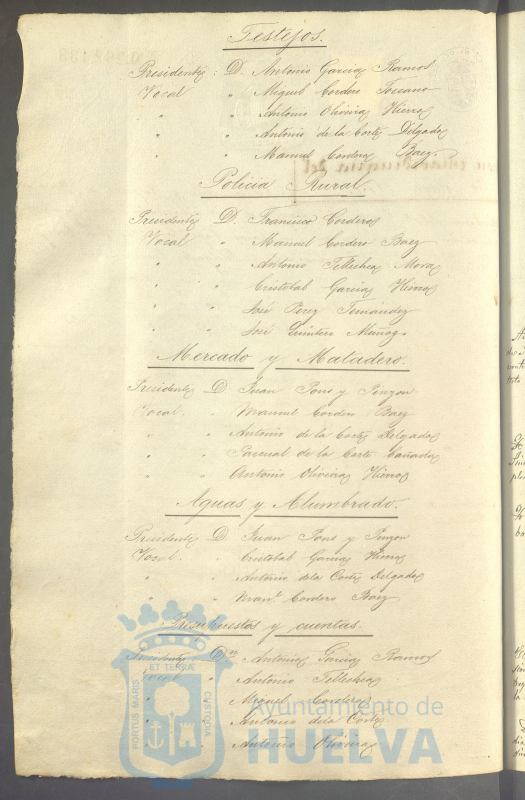 Festejos.
Presidente: D. Antonio Garcia Ramos
Vocal " Miguel Cordero Toscano
" " Antonio Oliveira Hierro
" " Antonio de la Corte Delgado
" " Manuel Cordero Baez.
Policia Rural.
Presidente D. Francisco Cordero
Vocal " Manuel Cordero Baez
" " Antonio Tellechea Mora
" " Cristobal Garcia Hierro
" " José Perez Fernández
" " José Quintero Muñoz
Mercado y Matadero.
Presidente D Juan Pons y Pinzon
Vocal. " Manuel Cordero Baez
" " Antonio de la Corte Delgado
" " Pascual de la Corte Cañada
" " Antonio Oliveira Hierro
Aguas y Alumbrado.
Presidente D. Juan Pons y Pinzon
Vocal. " Cristobal Garcia Hierro
" " Antonio dela Corte Delgado
" " Man.l Cordero Baez
Presupuestos y cuentas.
Presidente D.n Antonio Garcia Ramos
Vocal " Antonio Tellechea
" " Miguel Cordero
" " Antonio dela Corte
" " Antonio Oliveira
PORTUS MARIS
ET TERRÆ
CUSTODIA
Ayuntamiento de
HUELVA